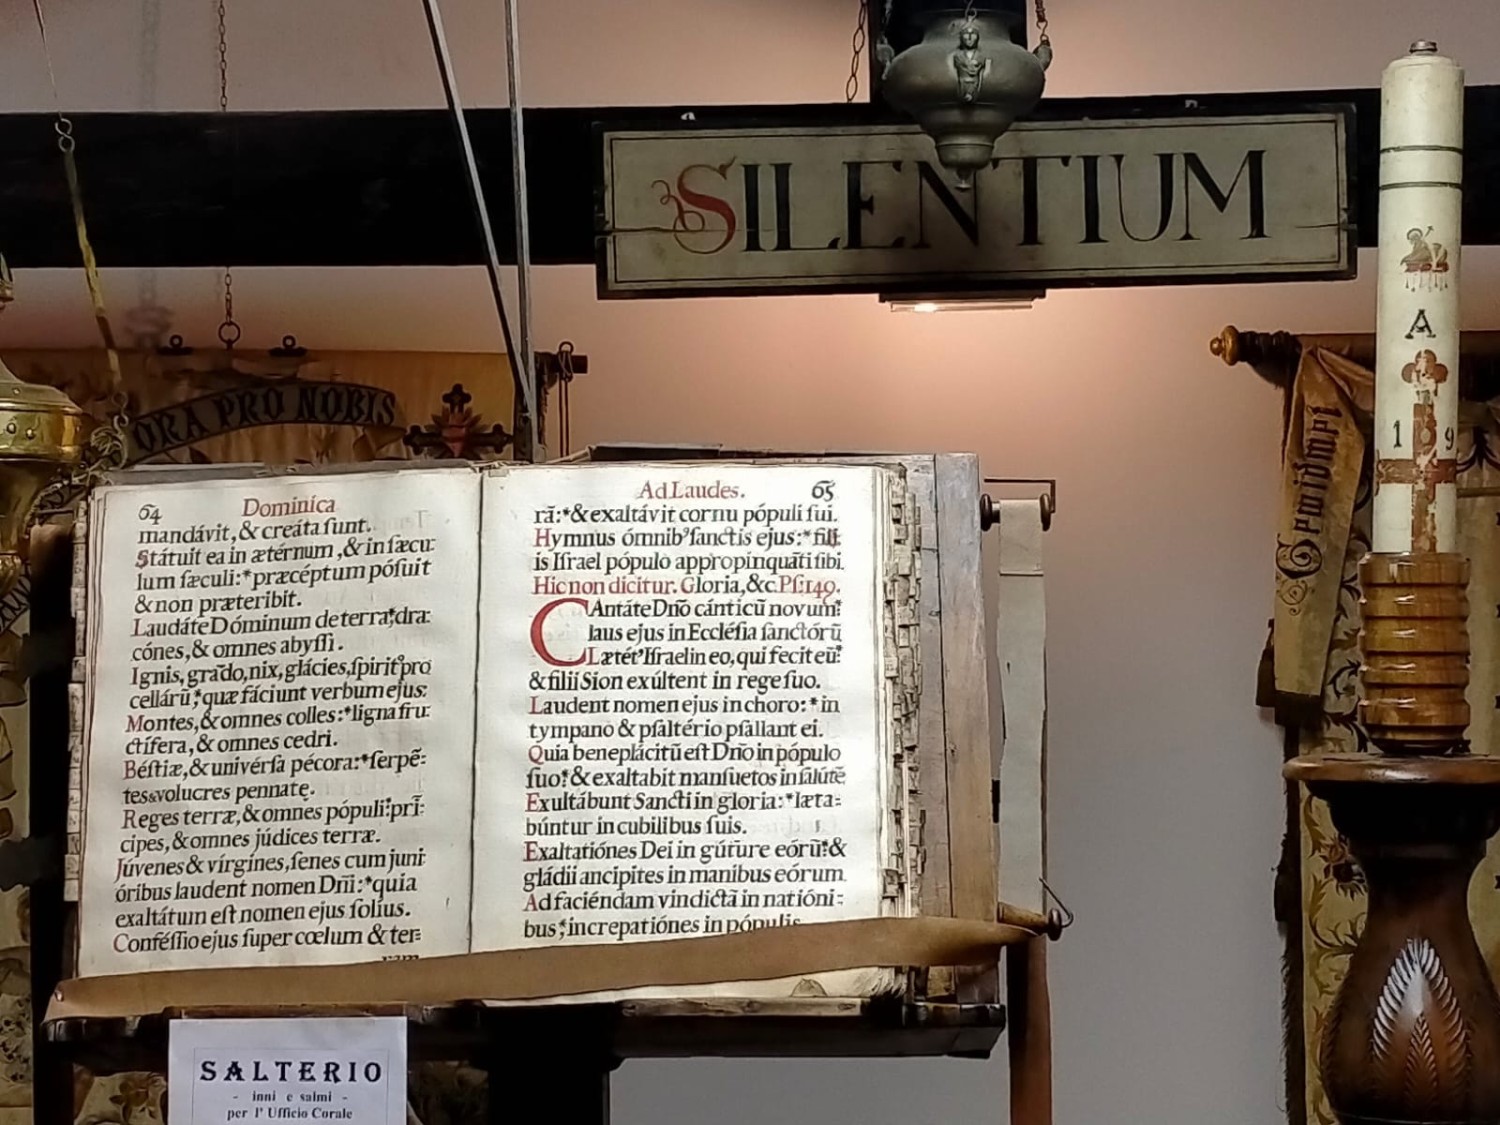 SILENTIUM
A
1 9
ORA PRO NOBIS
64 Dominica
mandávit, & creáta ſunt.
Státuit ea in ætérnum, & in ſæcu:
lum ſæculi:* præcéptum póſuit
& non præteribit.
Laudáte Dóminum de terra,* dra:
cónes, & omnes abyſſi.
Ignis, grãdo, nix, glácies, ſpirit⁹ pro
cellárũ,* quæ fáciunt verbum ejus:
Montes, & omnes colles:* ligna fru:
ctífera, & omnes cedri.
Béſtiæ, & univérſa pécora:* ſerpẽ=
tes & volucres pennatę.
Reges terræ, & omnes pópuli:* prĩ:
cipes, & omnes júdices terræ.
Júvenes & vírgines, ſenes cum juni
óribus laudent nomen Dñi:* quia
exaltátum eſt nomen ejus ſolíus.
Conféſſio ejus ſuper cœlum & ter=
Ad Laudes. 65
rã:* & exaltávit cornu pópuli ſui.
Hymnus ómnib⁹ ſanctis ejus:* fili
is Iſrael pópulo appropinquãti ſibi.
Hic non dicitur. Gloria, &c. Pſ. 149.
CAntáte Dño cánticũ novum:*
laus ejus in Eccléſia ſanctórũ
Lætét⁹ Iſrael in eo, qui fecit eũ:*
& filii Sion exúltent in rege ſuo.
Laudent nomen ejus in choro:* in
tympano & pſaltério pſallant ei.
Quia beneplácitũ eſt Dño in pópulo
ſuo:* & exaltabit manſuetos in ſalútẽ
Exultábunt Sancti in gloria:* læta=
búntur in cubilibus ſuis.
Exaltatiónes Dei in gúture eórũ:* &
gládii ancipites in manibus eórum.
Ad faciéndam vindictã in natióni=
bus;* increpatiónes in pópulis
SALTERIO
- inni e salmi -
per l' Ufficio Corale